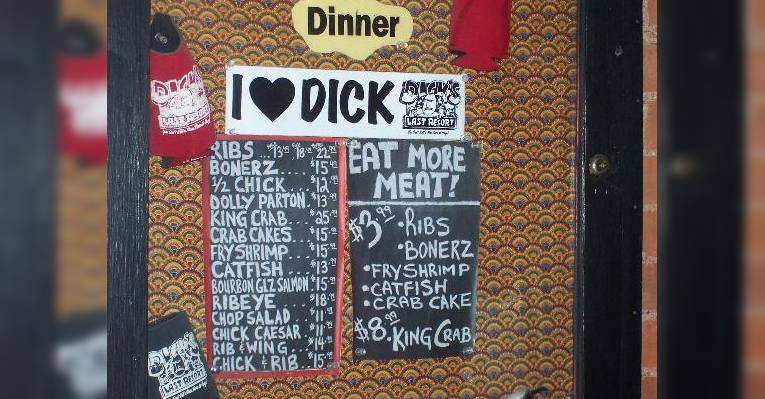 Dinner
I ♥ DICK DICK'S LAST RESORT
DICK'S
LAST RESORT
RIBS $13.99 $18.99 $22.99
BONERZ... $15.99
1/2 CHICK... $12.99
DOLLY PARTON $13.99
KING CRAB... $25.99
CRAB CAKES... $15.99
FRY SHRIMP... $15.99
CATFISH... $13.99
BOURBON GLZ SALMON $15.99
RIBEYE... $18.99
CHOP SALAD... $11.99
CHICK CAESAR $11.99
RIB & WING... $14.99
CHICK & RIB... $15.99
EAT MORE
MEAT!
$3.99 • RIBS
• BONERZ
• FRY SHRIMP
• CATFISH
• CRAB CAKE
$8.99 • KING CRAB
DICK'S
LAST RESORT